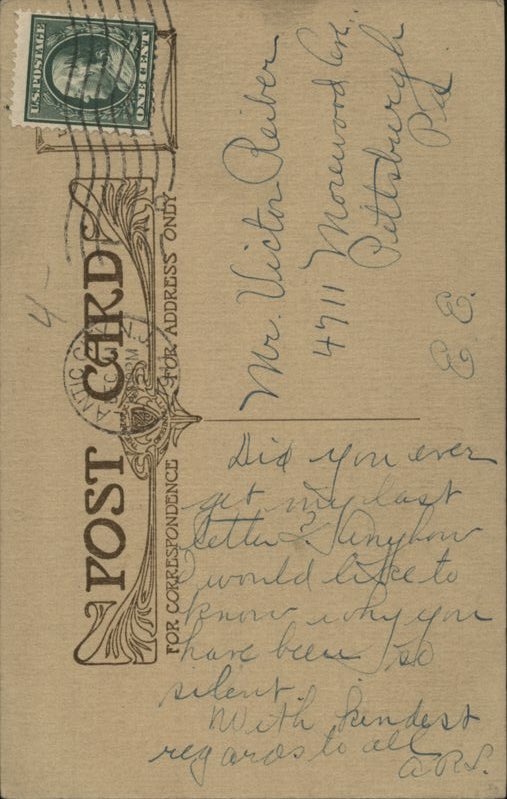 U.S. POSTAGE
ONE CENT ONE
ANTIC CITY
DEC
PM
4-
POST CARD
FOR CORRESPONDENCE
FOR ADDRESS ONLY
Mr. Victor Reiber
4711 Morewood Ave.
Pittsburgh
Pa
E. E.
Did you ever
get my last
letter? Anyhow
I would like to
know why you
have been so
silent.
With kindest
regards to all
A.R.S.